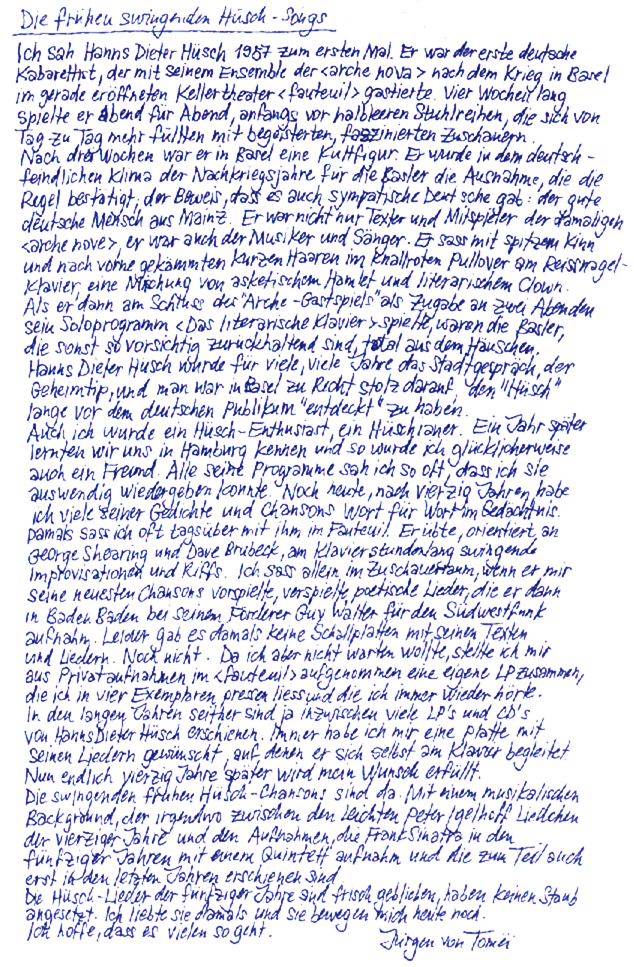 Die frühen swingenden Hüsch-Songs
Ich sah Hanns Dieter Hüsch 1957 zum ersten Mal. Er war der erste deutsche
Kabarettist, der mit seinem Ensemble der <arche nova> nach dem Krieg in Basel
im gerade eröffneten Kellertheater <fauteuil> gastierte. Vier Wochen lang
spielte er Abend für Abend, anfangs vor halbleeren Stuhlreihen, die sich von
Tag zu Tag mehr füllten mit begeisterten, faszinierten Zuschauern.
Nach drei Wochen war er in Basel eine Kultfigur. Er wurde in dem deutsch-
feindlichen Klima der Nachkriegsjahre für die Basler die Ausnahme, die die
Regel bestätigt, der Beweis, dass es auch sympatische Deutsche gab: der gute
deutsche Mensch aus Mainz. Er war nicht nur Texter und Mitspieler der damaligen
<arche nove>, er war auch der Musiker und Sänger. Er sass mit spitzem Kinn
und nach vorne gekämmten kurzen Haaren im knallroten Pullover am Reissnagel-
klavier, eine Mischung von asketischem Hamlet und literarischem Clown.
Als er dann am Schluss des 'Arche-Gastspiels' als Zugabe an zwei Abenden
sein Soloprogramm <Das literarische Klavier> spielte, waren die Basler,
die sonst so vorsichtig zurückhaltend sind, total aus dem Häuschen.
Hanns Dieter Hüsch wurde für viele, viele Jahre das Stadtgespräch, der
Geheimtip, und man war in Basel zu Recht stolz darauf, den "Hüsch"
lange vor dem deutschen Publikum "entdeckt" zu haben.
Auch ich wurde ein Hüsch-Enthusiast, ein Hüschianer. Ein Jahr später
lernten wir uns in Hamburg kennen und so wurde ich glücklicherweise
auch ein Freund. Alle seine Programme sah ich so oft, dass ich sie
auswendig wiedergeben konnte. Noch heute, nach vierzig Jahren, habe
ich viele seiner Gedichte und Chansons Wort für Wort im Gedächtnis.
Damals sass ich oft tagsüber mit ihm im Fauteuil. Er übte, orientiert an
George Shearing und Dave Brubeck, am Klavier stundenlang swingende
Improvisationen und Riffs. Ich sass allein im Zuschauerraum, wenn er mir
seine neuesten Chansons vorspielte, verspielte, poetische Lieder, die er dann
in Baden Baden bei seinem Förderer Guy Walter für den Südwestfunk
aufnahm. Leider gab es damals keine Schallplatten mit seinen Texten
und Liedern. Noch nicht. Da ich aber nicht warten wollte, stellte ich mir
aus Privataufnahmen im <fauteuil> aufgenommen eine eigene LP zusammen,
die ich in vier Exemplaren pressen liess und die ich immer wieder hörte.
In den langen Jahren seither sind ja inzwischen viele LP's und CD's
von Hanns Dieter Hüsch erschienen. Immer habe ich mir eine Platte mit
seinen Liedern gewünscht, auf denen er sich selbst am Klavier begleitet.
Nun endlich vierzig Jahre später wird mein Wunsch erfüllt.
Die swingenden frühen Hüsch-Chansons sind da. Mit einem musikalischen
Background, der irgendwo zwischen den leichten Peter Igelhoff Liedchen
der vierziger Jahre und den Aufnahmen, die Frank Sinatra in den
fünfziger Jahren mit einem Quintett aufnahm und die zum Teil auch
erst in den letzten Jahren erschienen sind.
Die Hüsch-Lieder der fünfziger Jahre sind frisch geblieben, haben keinen Staub
angesetzt. Ich liebte sie damals und sie bewegen mich heute noch.
Ich hoffe, dass es vielen so geht.
Jürgen von Tomëi